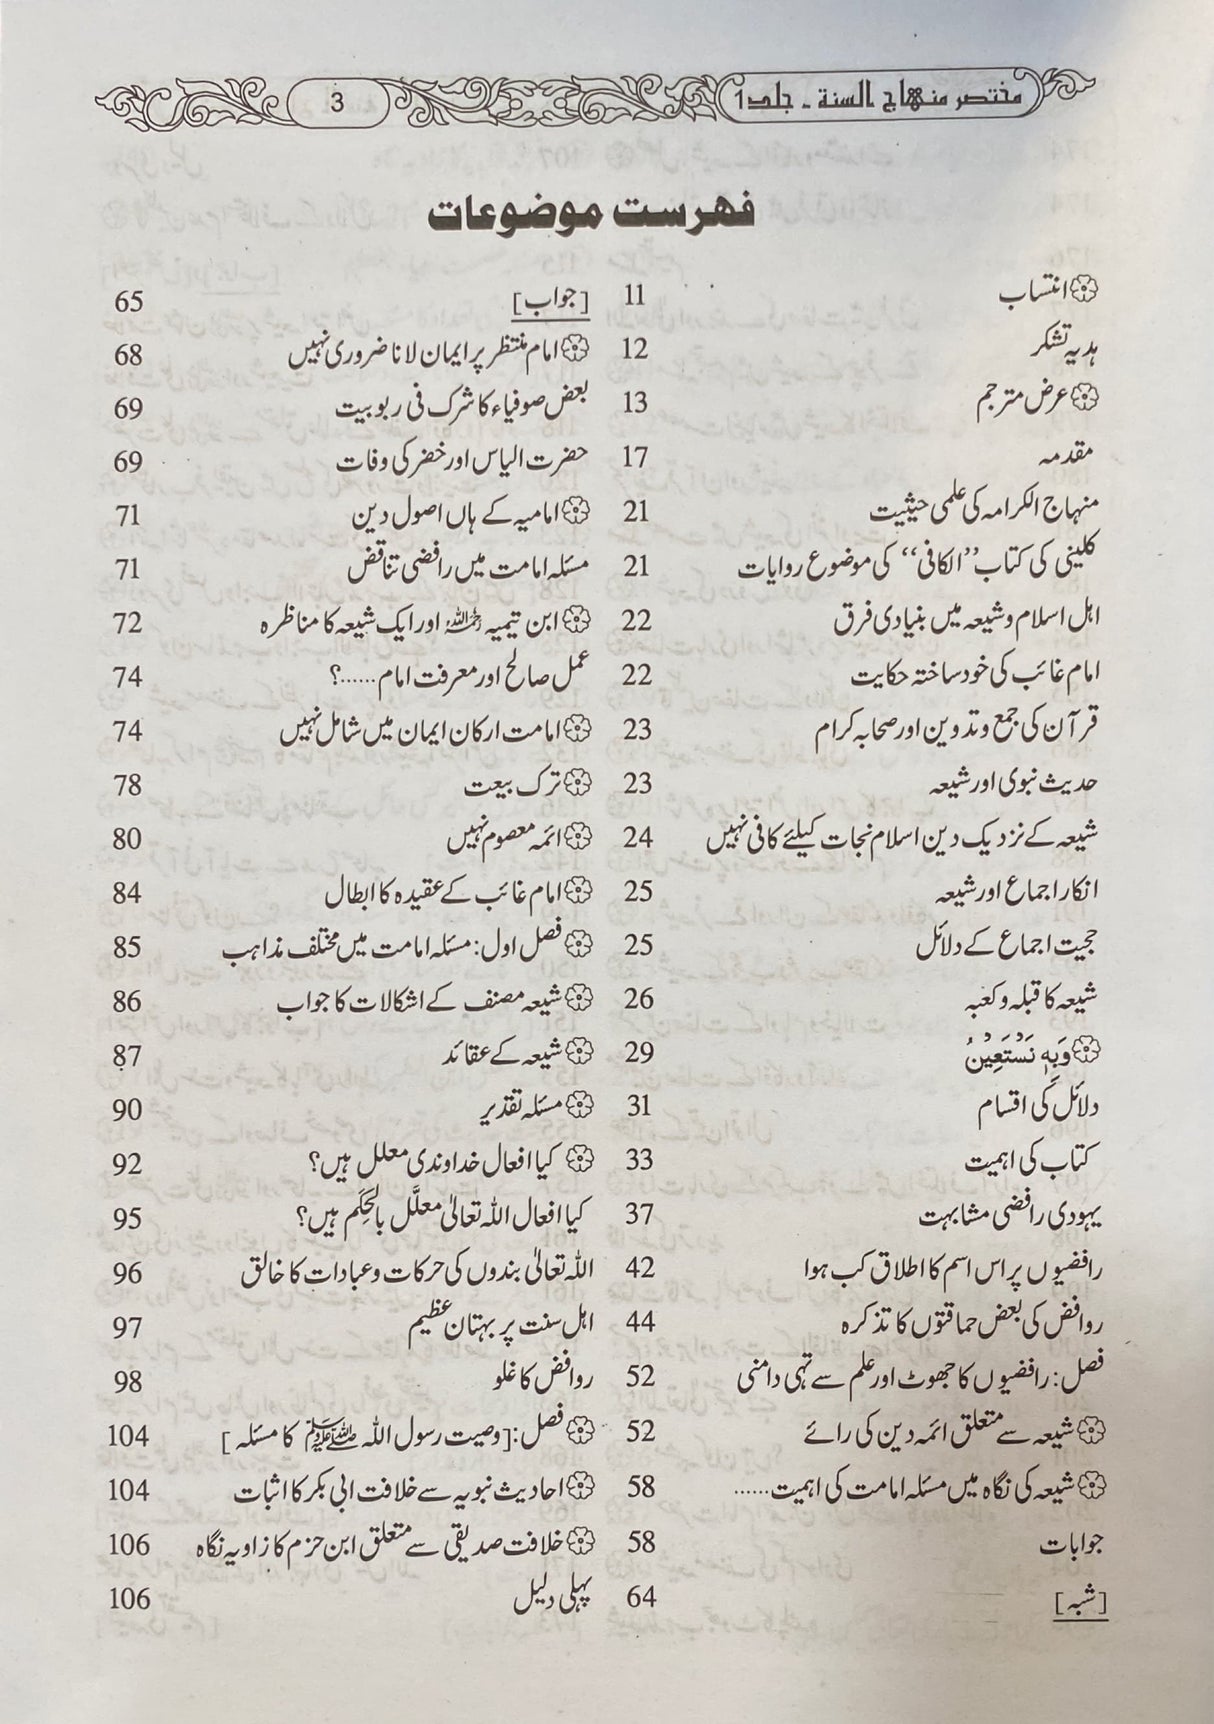 مختصر منہاج السنۃ ۔ جلد 1
3
فہرست موضوعات
انتساب 11
ہدیہ تشکر 12
عرض مترجم 13
مقدمہ 17
منہاج الکرامہ کی علمی حیثیت 21
کلینی کی کتاب ”الکافی“ کی موضوع روایات 21
اہل اسلام و شیعہ میں بنیادی فرق 22
امام غائب کی خود ساختہ حکایت 22
قرآن کی جمع و تدوین اور صحابہ کرام 23
حدیث نبوی اور شیعہ 23
شیعہ کے نزدیک دین اسلام نجات کیلئے کافی نہیں 24
انکار اجماع اور شیعہ 25
حجیت اجماع کے دلائل 25
شیعہ کا قبلہ و کعبہ 26
وَبِهٖ نَسْتَعِيْنُ 29
دلائل کی اقسام 31
کتاب کی اہمیت 33
یہودی رافضی مشابہت 37
رافضیوں پر اس اسم کا اطلاق کب ہوا 42
روافض کی بعض حماقتوں کا تذکرہ 44
فصل: رافضیوں کا جھوٹ اور علم سے تہی دامنی 52
شیعہ سے متعلق ائمہ دین کی رائے 52
شیعہ کی نگاہ میں مسئلہ امامت کی اہمیت...... 58
جوابات 58
[شبہ] 64
[جواب] 65
امام منتظر پر ایمان لانا ضروری نہیں 68
بعض صوفیاء کا شرک فی ربوبیت 69
حضرت الیاس اور خضر کی وفات 69
امامیہ کے ہاں اصول دین 71
مسئلہ امامت میں رافضی تناقض 71
ابن تیمیہ رحمہ اللہ اور ایک شیعہ کا مناظرہ 72
عمل صالح اور معرفت امام......؟ 74
امامت ارکان ایمان میں شامل نہیں 74
ترک بیعت 78
ائمہ معصوم نہیں 80
امام غائب کے عقیدہ کا ابطال 84
فصل اول: مسئلہ امامت میں مختلف مذاہب 85
شیعہ مصنف کے اشکالات کا جواب 86
شیعہ کے عقائد 87
مسئلہ تقدیر 90
کیا افعال خداوندی معلل ہیں؟ 92
کیا افعال اللہ تعالیٰ معلَّل بالحِکَم ہیں؟ 95
اللہ تعالیٰ بندوں کی حرکات و عبادات کا خالق 96
اہل سنت پر بہتان عظیم 97
روافض کا غلو 98
فصل: [وصیت رسول اللہ ﷺ کا مسئلہ] 104
احادیث نبویہ سے خلافت ابی بکر کا اثبات 104
خلافت صدیقی سے متعلق ابن حزم کا زاویہ نگاہ 106
پہلی دلیل 106